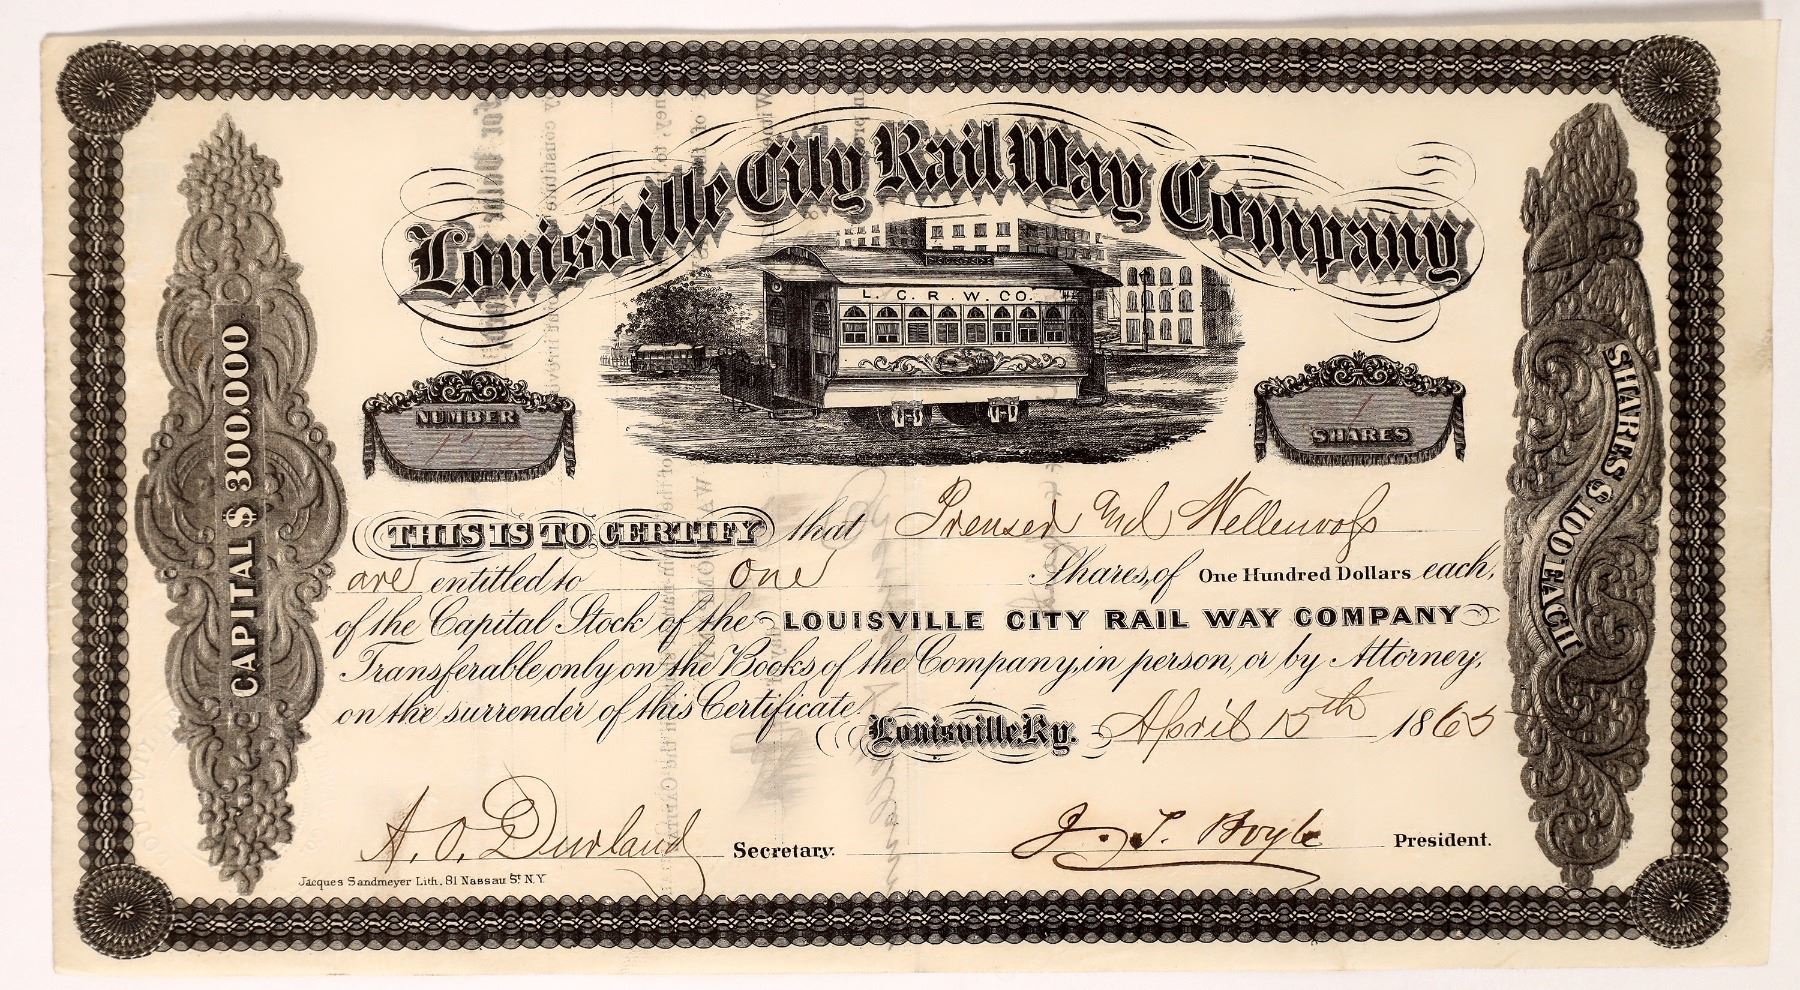 Louisville City Rail Way Company
L. C. R. W. CO.
NUMBER
1
SHARES
CAPITAL $ 300,000
SHARES $ 100 EACH
THIS IS TO CERTIFY that Preuser and Wellenvoss
are entitled to One Shares, of One Hundred Dollars each,
of the Capital Stock of the LOUISVILLE CITY RAIL WAY COMPANY
Transferable only on the Books of the Company, in person, or by Attorney,
on the surrender of this Certificate.
Louisville, Ky. April 15th 1865
A. O. Durland Secretary. J. T. Boyle President.
Jacques Sandmeyer Lith. 81 Nassau St. N.Y.